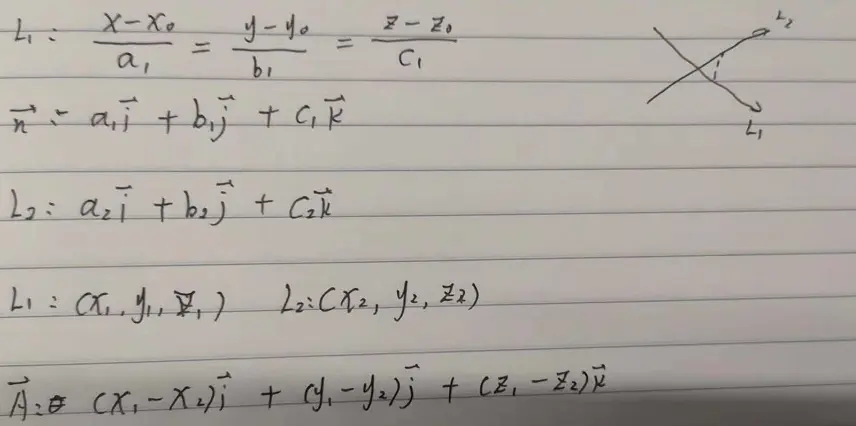 L₁: (x-x₀)/a₁ = (y-y₀)/b₁ = (z-z₀)/c₁
L₂
L₁
n⃗ = a₁i⃗ + b₁j⃗ + c₁k⃗
L₂: a₂i⃗ + b₂j⃗ + c₂k⃗
L₁: (x₁, y₁, z₁) L₂: (x₂, y₂, z₂)
A⃗: (x₁-x₂)i⃗ + (y₁-y₂)j⃗ + (z₁-z₂)k⃗